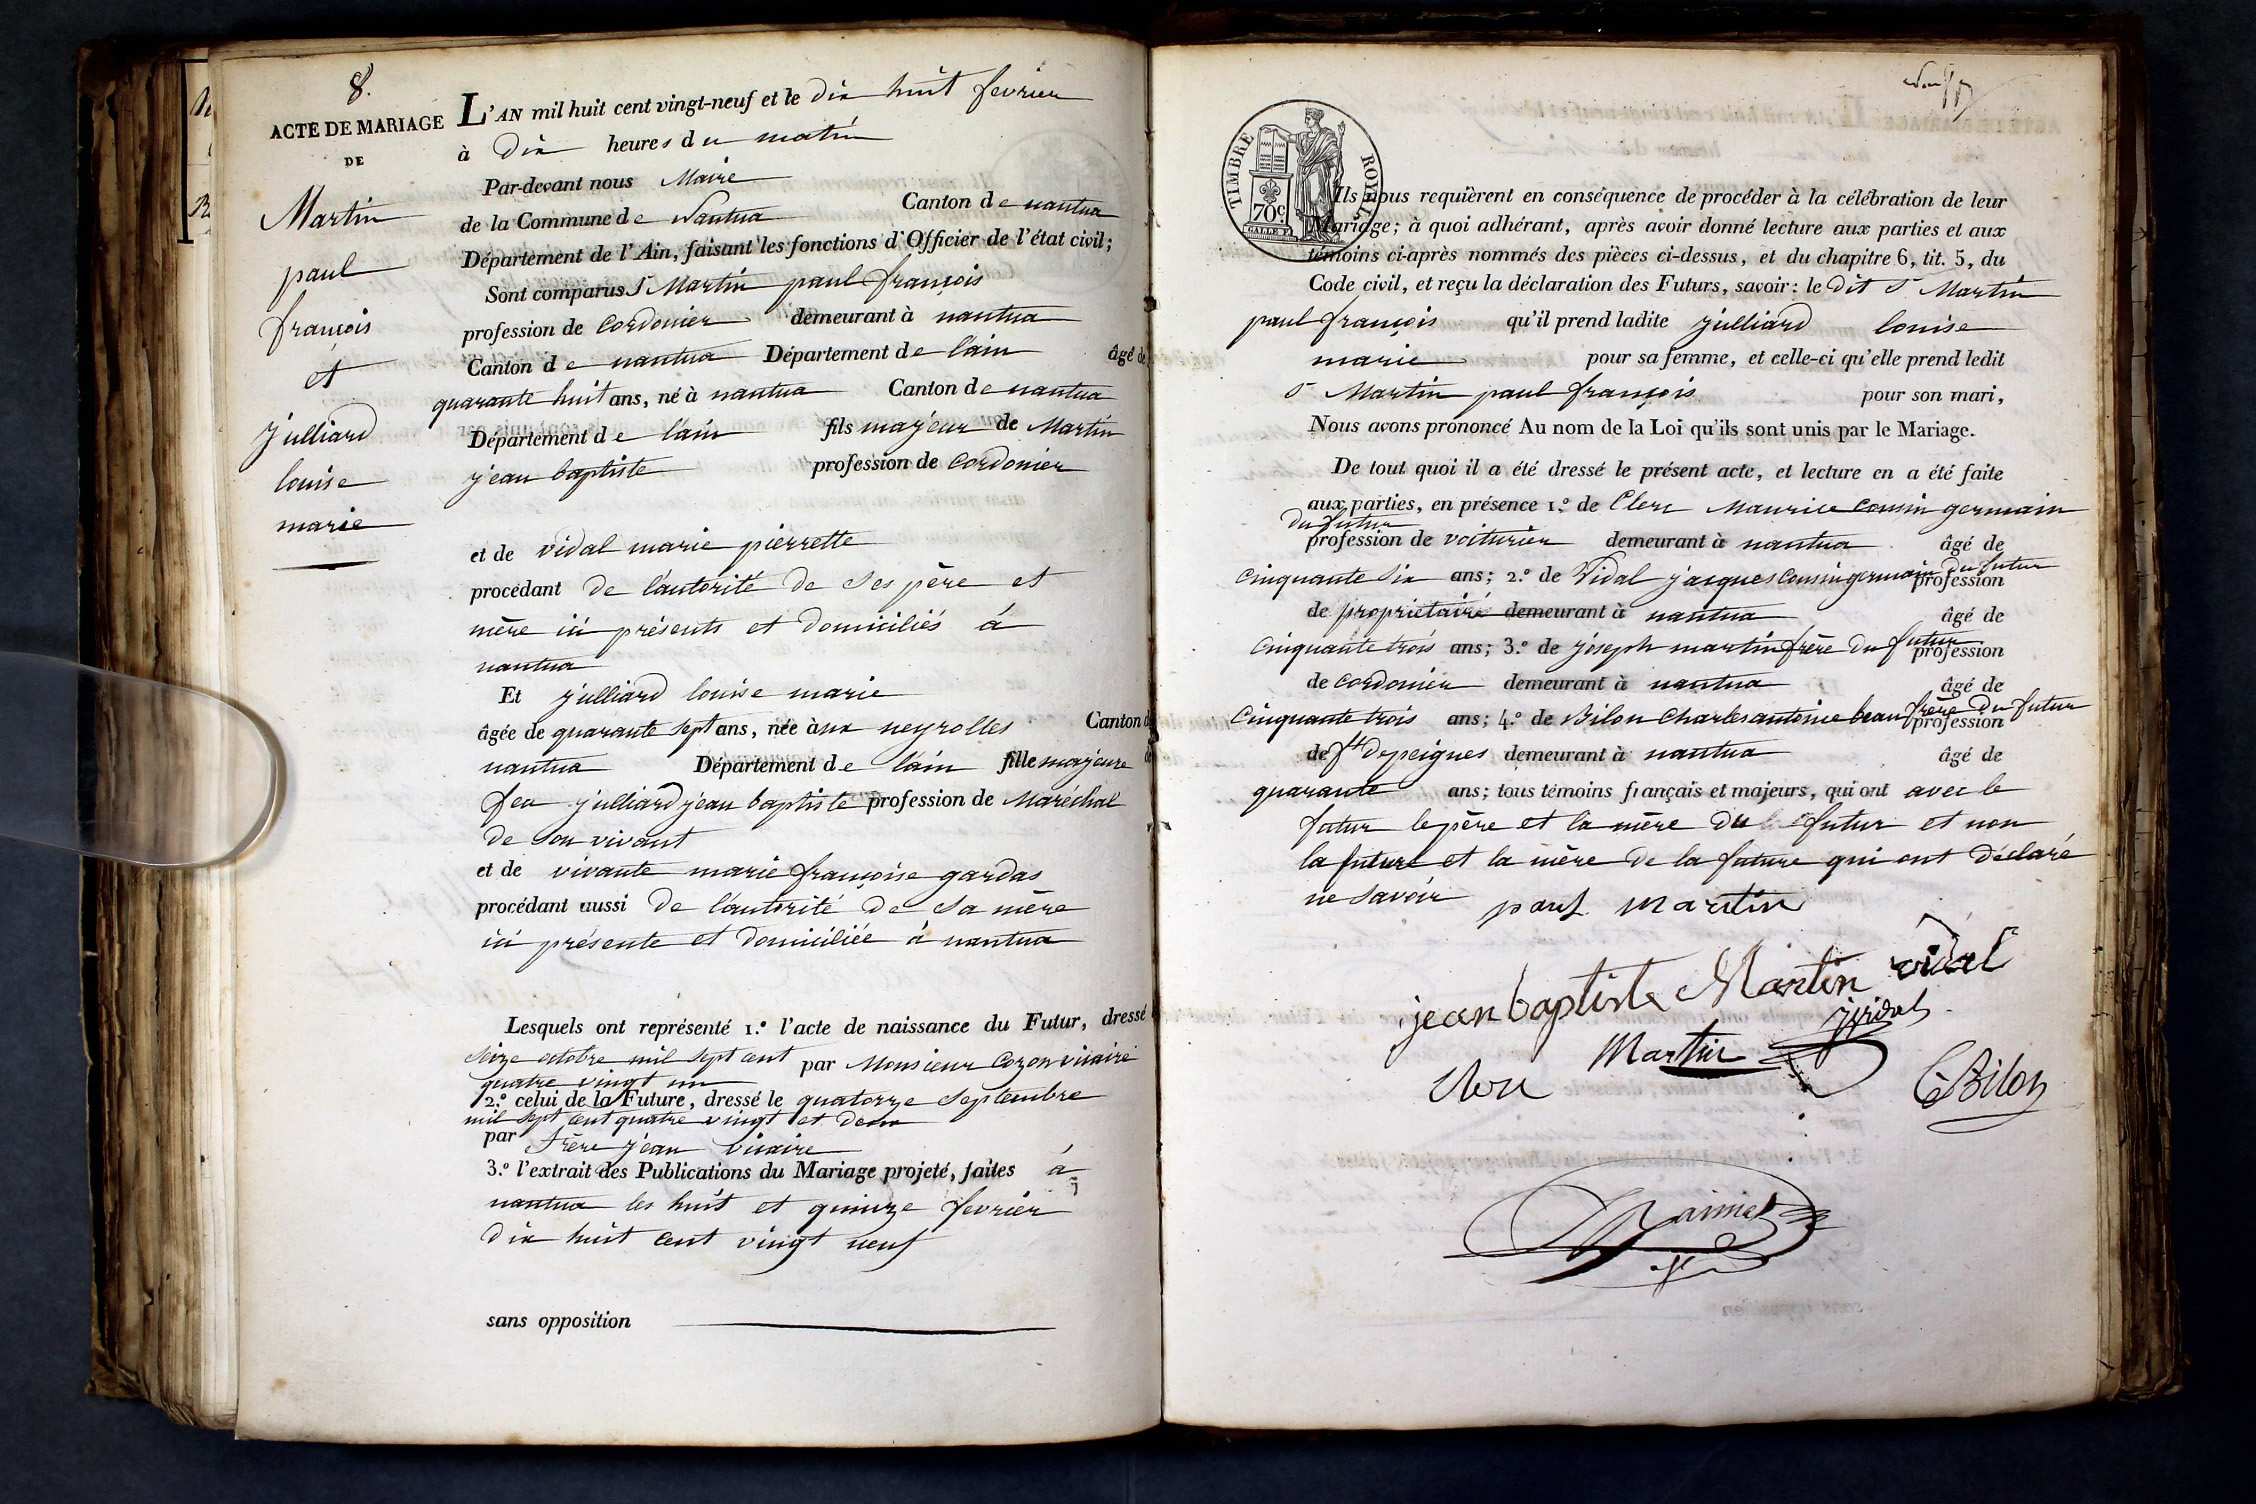 8.
ACTE DE MARIAGE
DE
Martin
paul
françois
et
julliard
louise
marie
L'AN mil huit cent vingt-neuf et le dix huit fevrier
à dix heures du matin
Par-devant nous Maire
de la Commune de Nantua Canton de nantua
Département de l'Ain, faisant les fonctions d'Officier de l'état civil;
Sont comparus S.r Martin paul françois
profession de cordonier demeurant à nantua
Canton de nantua Département de l'ain âgé de
quarante huit ans, né à nantua Canton de nantua
Département de l'ain fils majeur de Martin
jean baptiste profession de cordonier
et de vidal marie pierrette
procédant de l'autorité de ses père et
mère ici présents et domiciliés à
nantua
Et julliard louise marie
âgée de quarante sept ans, née aux neyrolles Canton de
nantua Département de l'ain fille majeure de
feu julliard jean baptiste profession de Maréchal
de son vivant
et de vivante marie françoise gardas
procédant aussi de l'autorité de sa mère
ici présente et domiciliée à nantua
Lesquels ont représenté 1.º l'acte de naissance du Futur, dressé
seize octobre mil sept cent par Monsieur Cozon vicaire
quatre vingt un
2.º celui de la Future, dressé le quatorze septembre
mil sept cent quatre vingt et deux
par frère jean vicaire
3.º l'extrait des Publications du Mariage projeté, faites à
nantua les huit et quinze fevrier
dix huit cent vingt neuf
sans opposition
TIMBRE ROYAL
70 c.
Ils nous requièrent en conséquence de procéder à la célébration de leur
Mariage; à quoi adhérant, après avoir donné lecture aux parties et aux
témoins ci-après nommés des pièces ci-dessus, et du chapitre 6, tit. 5, du
Code civil, et reçu la déclaration des Futurs, savoir: le dit S.r Martin
paul françois qu'il prend ladite julliard louise
marie pour sa femme, et celle-ci qu'elle prend ledit
S.r Martin paul françois pour son mari,
Nous avons prononcé Au nom de la Loi qu'ils sont unis par le Mariage.
De tout quoi il a été dressé le présent acte, et lecture en a été faite
aux parties, en présence 1.º de Clerc Maurice cousin germain
du futur
profession de voiturier demeurant à nantua âgé de
cinquante six ans; 2.º de Vidal jacques cousin germain du futur profession
de propriétaire demeurant à nantua âgé de
cinquante trois ans; 3.º de joseph martin frère du futur profession
de cordonier demeurant à nantua âgé de
cinquante trois ans; 4.º de Bilon Charles antoine beau frère du futur profession
de f.t de peignes demeurant à nantua âgé de
quarante ans; tous témoins français et majeurs, qui ont avec le
futur le père et la mère du futur et non
la future et la mère de la future qui ont déclaré
ne savoir
paul martin
jean baptiste Martin vidal
Martin jvidal
CBilon